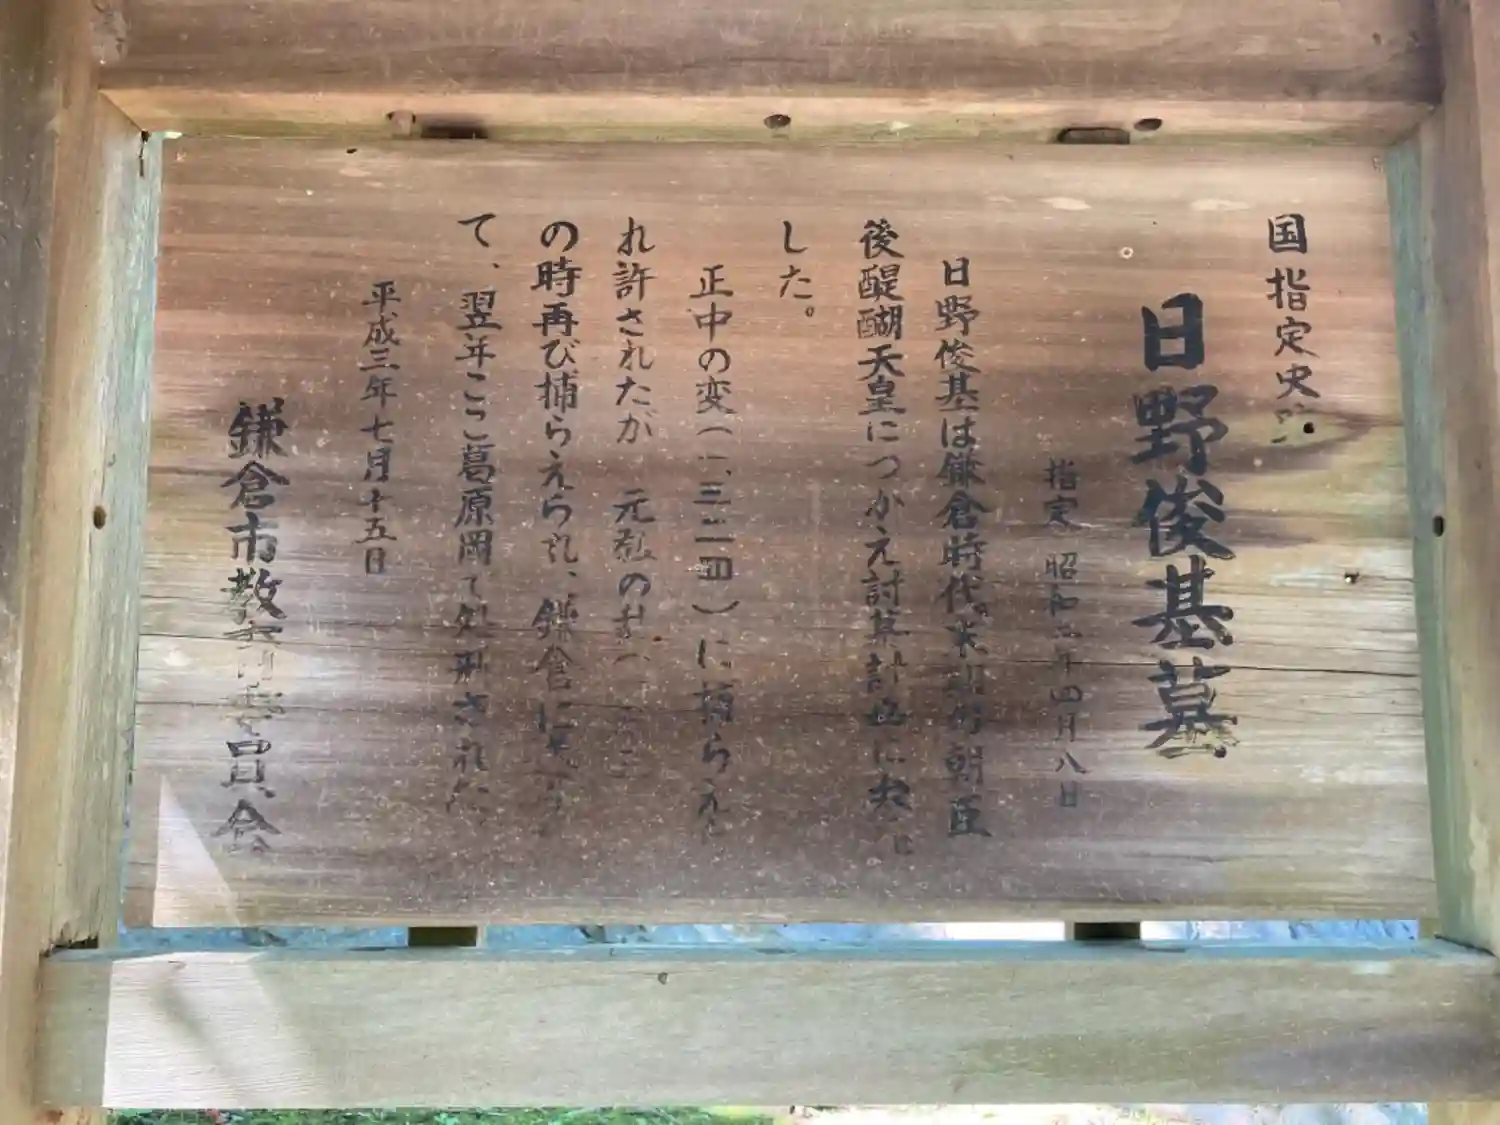 国指定史跡
日野俊基墓
指定 昭和二年四月八日
日野俊基は鎌倉時代末期の朝臣
後醍醐天皇につかえ討幕計画に
した。
正中の変(一、三二四)に捕らえら
れ許されたが 元弘の乱(
の時再び捕らえられ、鎌倉に
て、翌年ここ葛原岡で処刑された
平成三年七月十五日
鎌倉市教育委員会